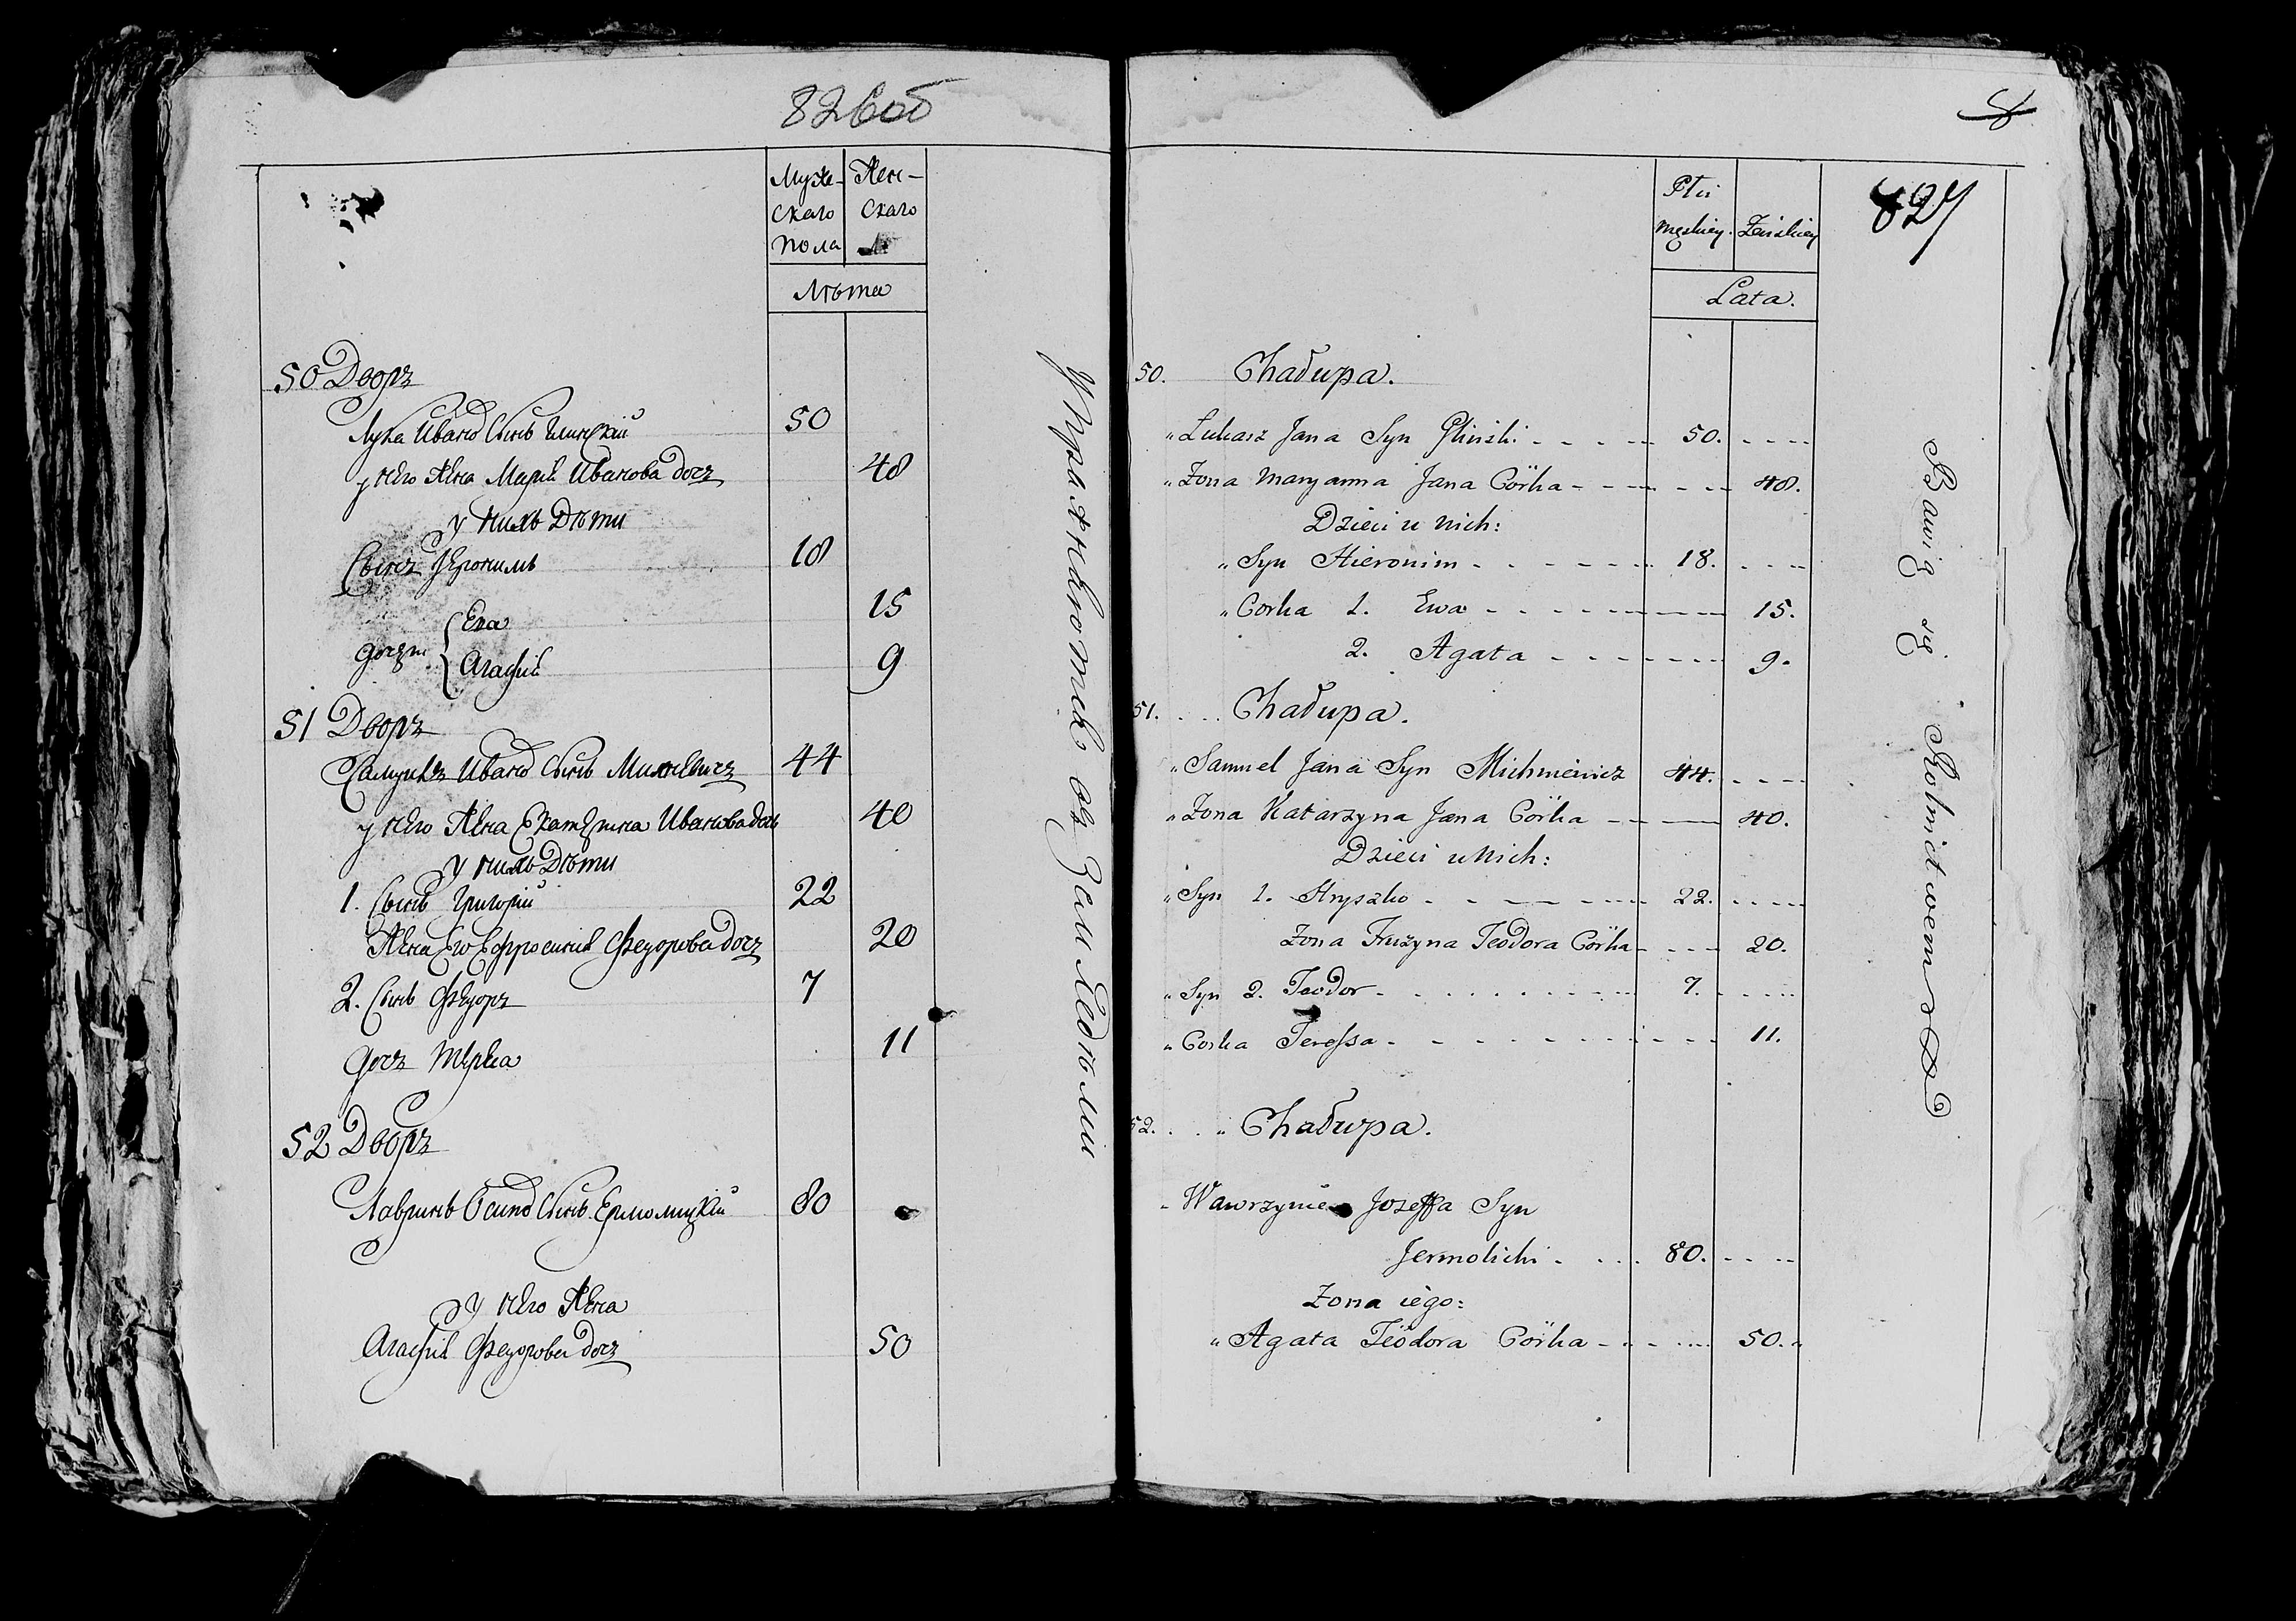 826об
Муже- Жен-
скаго скаго
пола
Лѣта
50 Дворъ
Лука Иванов Сынъ Глинскій 50
у него Жена Марія Иванова дочь 48
у нихъ Дѣти
Сынъ Іеронимъ 18
Ева 15
дочери
Агафія 9
51 Дворъ
Самуилъ Иванов Сынъ Михневичъ 44
у него Жена Екатерина Иванова дочь 40
у нихъ Дѣти
1. Сынъ Григорій 22
Жена Его Ефросинія Федорова дочь 20
2. Сынъ Федоръ 7
дочь 11
52 Дворъ
Лавринъ Осипов Сынъ Ермолицкій 80
у него Жена
Агафія Федорова дочь 50
Упражняются въ Земледѣліи
8
827
Płci
męskiey. Żeńskiey
Lata.
50. Chałupa.
„ Łukasz Jana Syn Gliński 50.
„ Zona Maryanna Jana Córka 48.
Dzieci u Nich:
„ Syn Hieronim 18.
„ Corka 1. Ewa 15.
2. Agata 9.
51. Chałupa.
„ Samuel Jana Syn Michniewicz 44.
„ Zona Katarzyna Jana Córka 40.
Dzieci u Nich:
„ Syn 1. Hryszko 22.
Zona Fruzyna Teodora Córka 20.
„ Syn 2. Teodor 7.
„ Corka Teressa 11.
52. „ Chałupa.
„ Wawrzyniec Jozeffa Syn
Jermolicki 80.
Zona iego:
„ Agata Teodora Córka 50.
Bawią się Rolnictwem